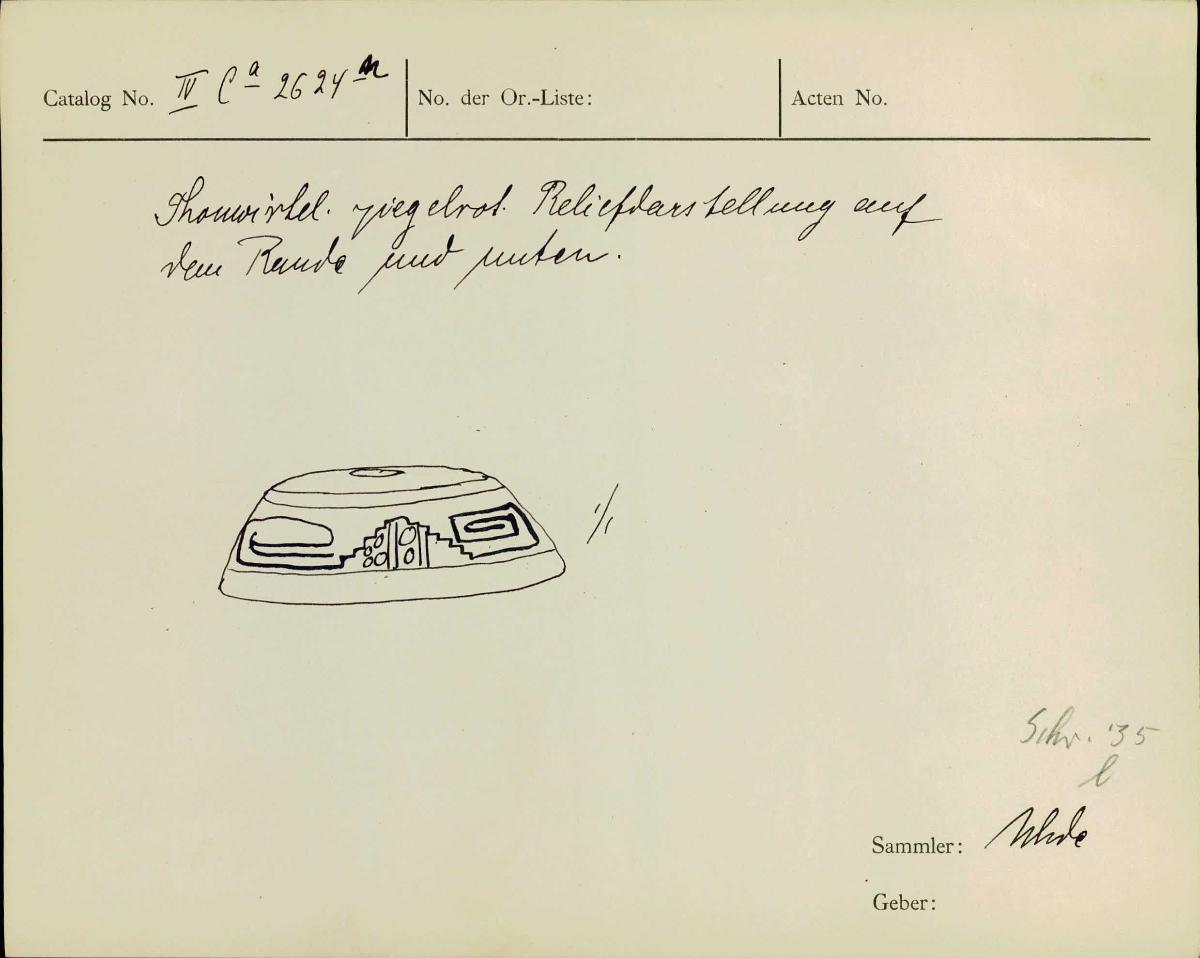 Catalog No. IV Ca 2624 m
No. der Or.-Liste:
Acten No.
Thonwirtel. ziegelrot. Reliefdarstellung auf
dem Rande und unten.
1/1
Schr. '35
l
Sammler: Uhde
Geber: